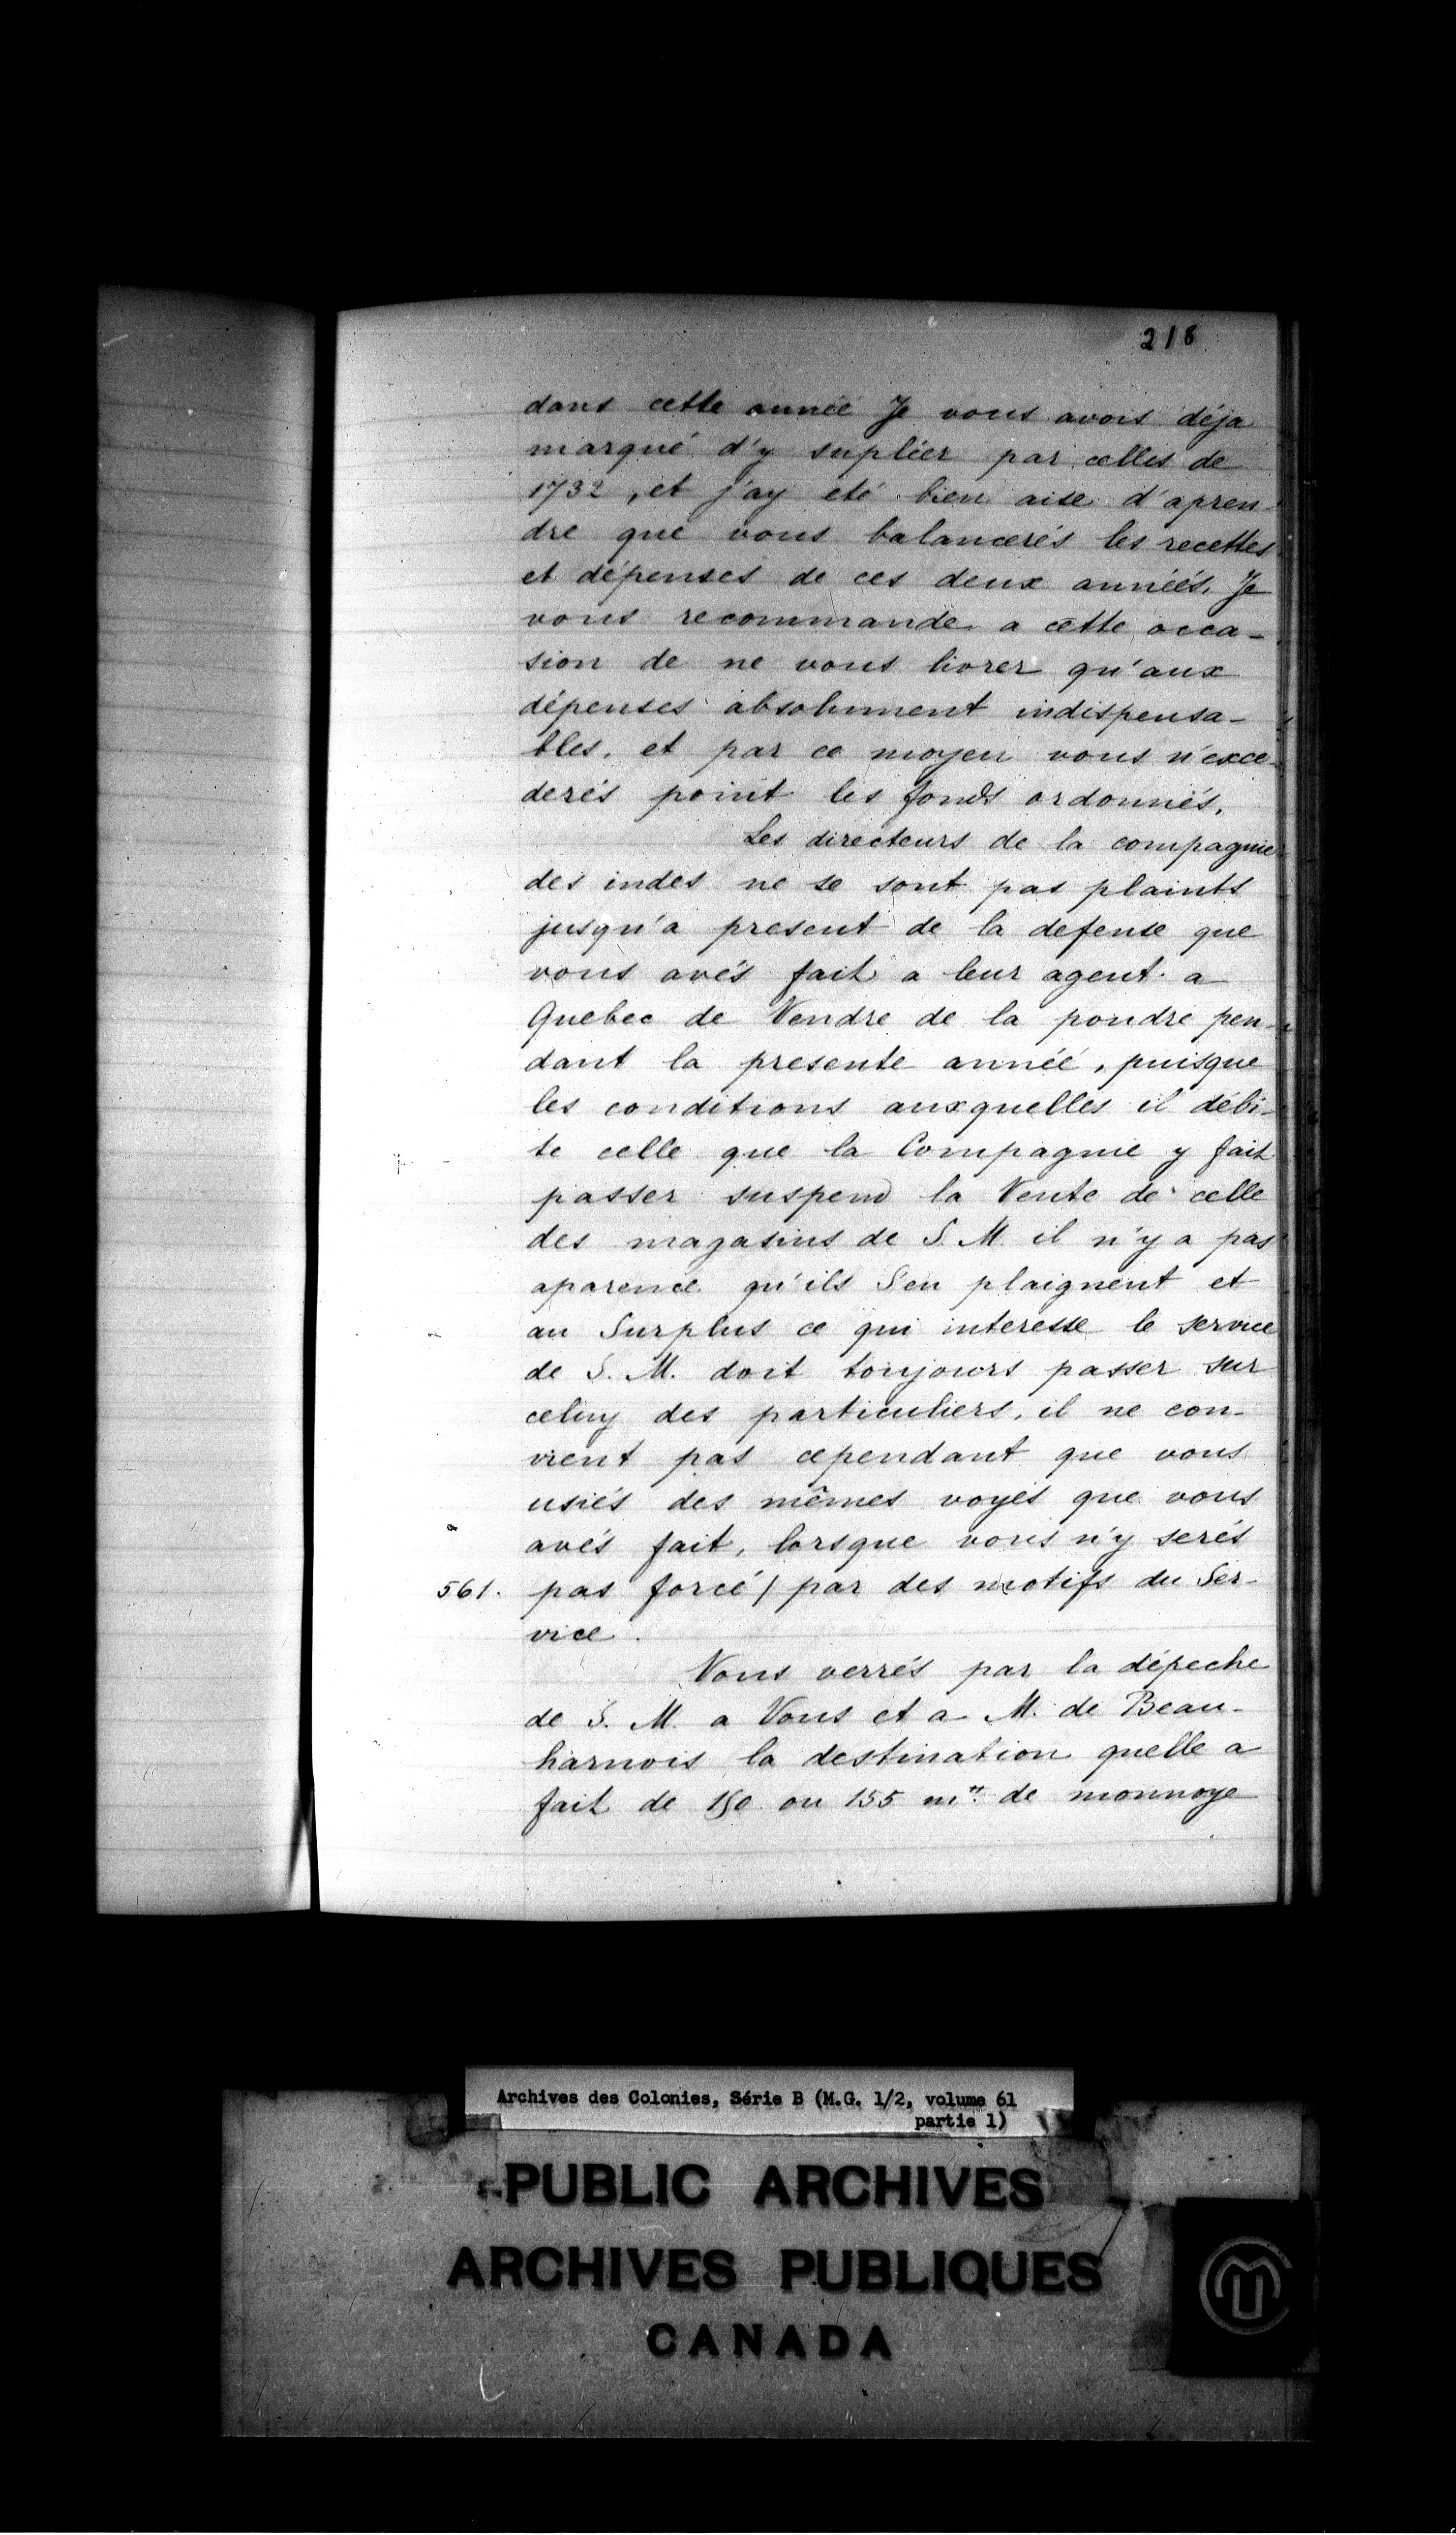 218
dans cette anneé Je vous avois déja
marqué d'y supléer par celles de
1732, et j'ay eté bien aise d'apren-
dre que vous balancerés les recettes
et dépenses de ces deux annéés. Je
vous recommande a cette occa-
sion de ne vous livrer qu'aux
dépenses absolument indispensa-
bles, et par ce moyen vous n'exce-
derés point les fonds ordonnés.
Les directeurs de la compagnie
des indes ne se sont pas plaints
jusqu'a present de la defense que
vous avés fait a leur agent a
Quebec de Vendre de la poudre pen-
dant la presente annéé, puisque
les conditions auxquelles il débi-
te celle que la Compagnie y fait
passer suspend la Vente de celle
des magasins de S. M. il n'y a pas
aparence qu'ils S'en plaignent et
au Surplus ce qui interesse le service
de S. M. doit toujours passer sur
celuy des particuliers, il ne con-
vient pas cependant que vous
usiés des mêmes voyes que vous
avés fait, lorsque vous n'y serés
561. pas forcé / par des motifs du Ser-
vice.
Vous verrés par la dépeche
de S. M. a Vous et a M. de Beau-
harnois la destination quelle a
fait de 150 ou 155 m^tt. de monnoye
Archives des Colonies, Série B (M.G. 1/2, volume 61
partie 1)
PUBLIC ARCHIVES
ARCHIVES PUBLIQUES
CANADA